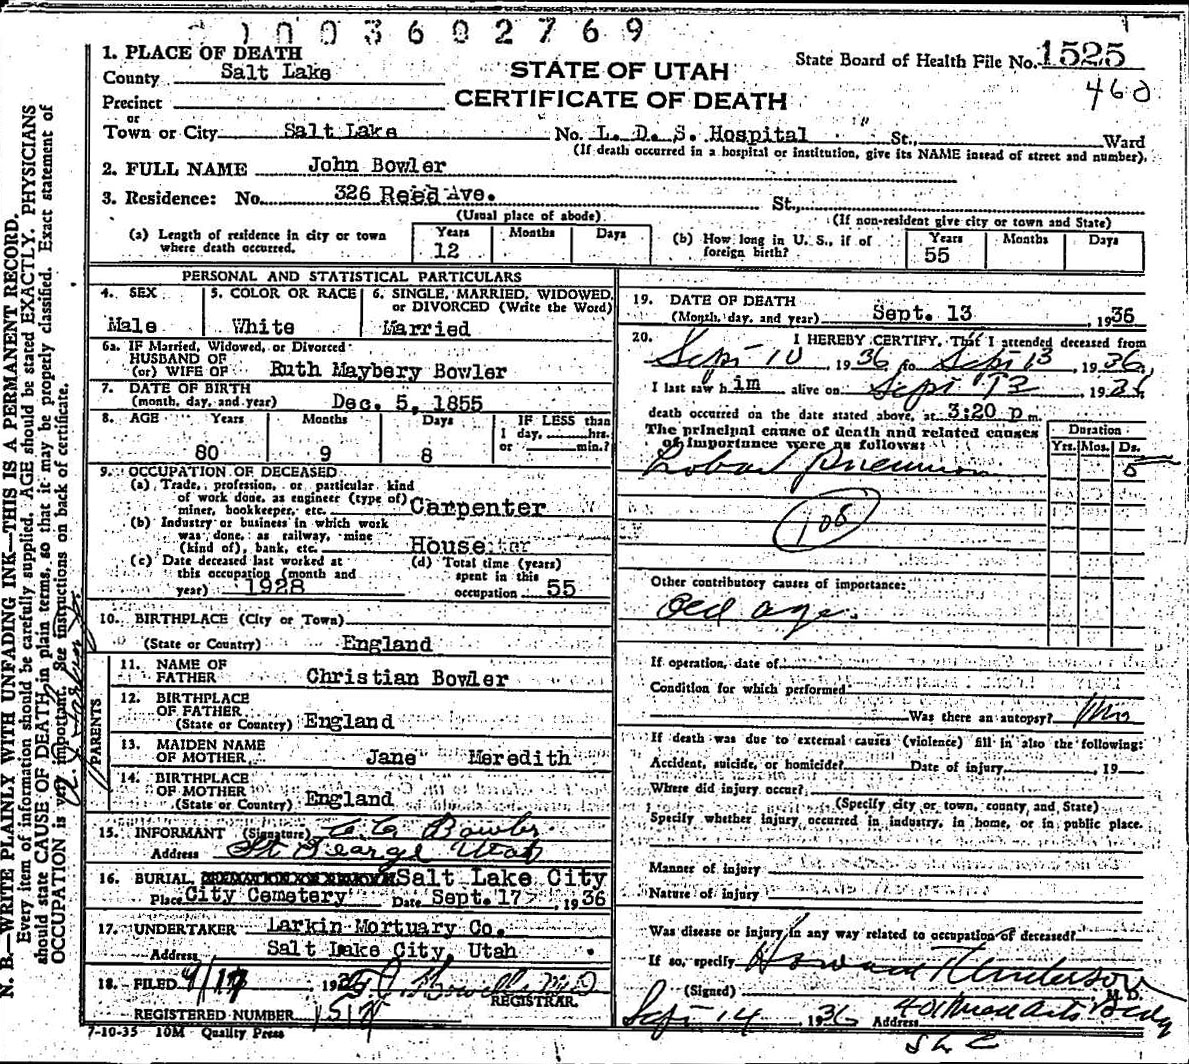 1003602769
1. PLACE OF DEATH
County Salt Lake
STATE OF UTAH
State Board of Health File No. 1525
Precinct
CERTIFICATE OF DEATH
460
or
Town or City Salt Lake No. L. D. S. Hospital St., Ward
(If death occurred in a hospital or institution, give its NAME insead of street and number).
2. FULL NAME John Bowler
3. Residence: No. 326 Reed Ave. St.,
(Usual place of abode) (If non-resident give city or town and State)
(a) Length of residence in city or town where death occurred. Years 12 Months Days
(b) How long in U. S., if of foreign birth? Years 55 Months Days
PERSONAL AND STATISTICAL PARTICULARS
4. SEX Male
5. COLOR OR RACE White
6. SINGLE, MARRIED, WIDOWED, or DIVORCED (Write the Word) Married
6a. IF Married, Widowed, or Divorced
HUSBAND OF
(or) WIFE OF Ruth Maybery Bowler
7. DATE OF BIRTH
(month, day, and year) Dec. 5, 1855
8. AGE Years 80 Months 9 Days 8
IF LESS than
1 day, hrs.
or min.?
9. OCCUPATION OF DECEASED
(a) Trade, profession, or particular kind
of work done, as engineer (type of)
miner, bookkeeper, etc. Carpenter
(b) Industry or business in which work
was done, as railway, mine
(kind of), bank, etc. House
(c) Date deceased last worked at
this occupation (month and
year) 1928
(d) Total time (years)
spent in this
occupation 55
10. BIRTHPLACE (City or Town)
(State or Country) England
PARENTS
11. NAME OF
FATHER Christian Bowler
12. BIRTHPLACE
OF FATHER
(State or Country) England
13. MAIDEN NAME
OF MOTHER Jane Meredith
14. BIRTHPLACE
OF MOTHER
(State or Country) England
15. INFORMANT (Signature) Bowler
Address St George Utah
16. BURIAL, Salt Lake City
Place City Cemetery Date Sept. 17 , 1936
17. UNDERTAKER Larkin Mortuary Co.
Address Salt Lake City, Utah
18. FILED 9/17 , 1936
REGISTRAR.
REGISTERED NUMBER 1517
7-10-35 10M Quality Press
19. DATE OF DEATH
(Month, day, and year) Sept. 13 , 1936
20. I HEREBY CERTIFY, That I attended deceased from
Sept 10 , 1936, to Sept 13 , 1936,
I last saw him alive on Sept 13 , 1936,
death occurred on the date stated above, at 3:20 p m.
The principal cause of death and related causes
of importance were as follows:
Duration
Yrs. Mos. Ds.
Lobar Pneumonia 5
108
Other contributory causes of importance:
Old age.
If operation, date of
Condition for which performed
Was there an autopsy? No
If death was due to external causes (violence) fill in also the following:
Accident, suicide, or homicide? Date of injury , 19
Where did injury occur?
(Specify city or town, county, and State)
Specify whether injury occurred in industry, in home, or in public place.
Manner of injury
Nature of injury
Was disease or injury in any way related to occupation of deceased?
If so, specify
(Signed) Howard Anderson M. D.
Sept 14 1936 Address
S L C
N. B.—WRITE PLAINLY WITH UNFADING INK—THIS IS A PERMANENT RECORD.
Every item of information should be carefully supplied. AGE should be stated EXACTLY. PHYSICIANS
should state CAUSE OF DEATH in plain terms, so that it may be properly classified. Exact statement of
OCCUPATION is very important. See instructions on back of certificate.